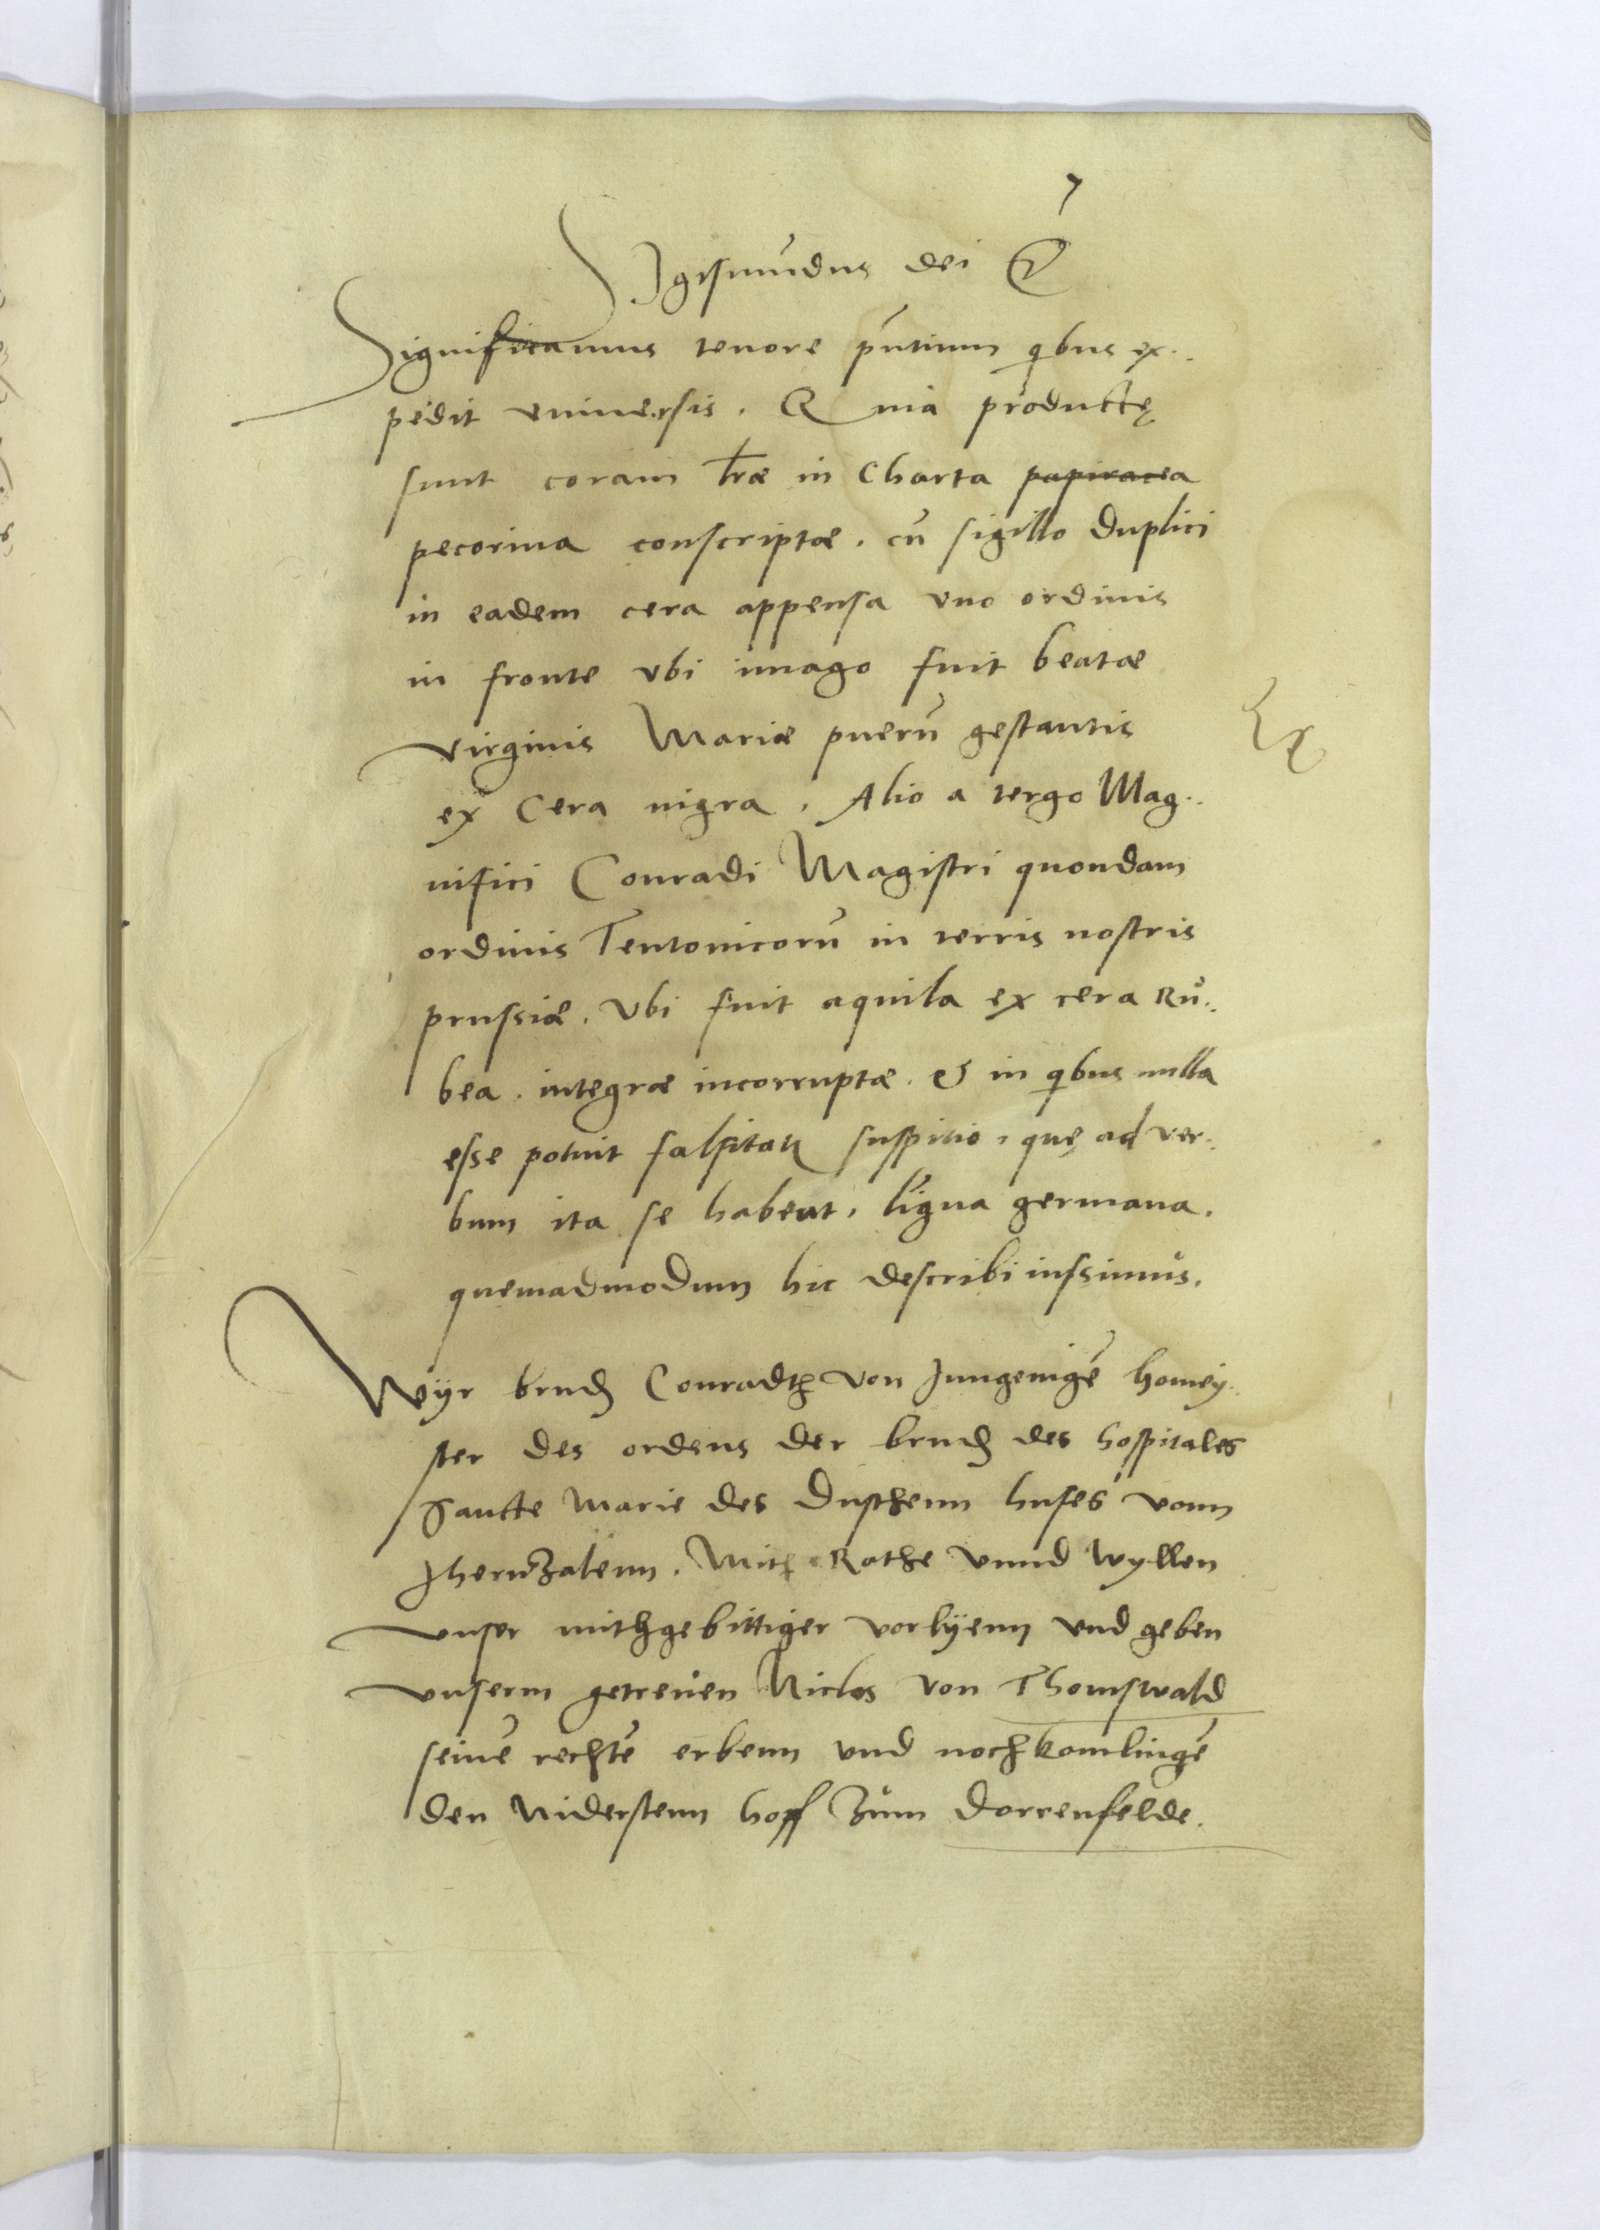 7
Sigismūdus dei &
Significamus tenore pn̄tium qibus ex..
pedit vniuersis. Quia productę
sunt coram lr̄æ in Charta papiracea
pecorina conscriptæ. cū sigillo duplici
in eadem cera appensa vno ordinis
in fronte vbi imago fuit beatæ
virginis Mariæ puerū gestantis
ex Cera nigra. Alio a tergo Mag..
nifici Conradi Magistri quondam
ordinis Teutonicorū in terris nostris
prussiæ. Vbi fuit aquila ex cera Ru..
bea. integræ incorruptæ. & in qibus nulla
esse potuit falsitatis suspitio, quę ad ver..
bum ita se habent, līgua germana.
quemadmodum hic describi iussimus.
Wyr brud Conradth von Jungenigē homey..
ster des ordens der brud des hospitales
Sancte Marie des Duschenn huses vonn
Jheruzalenn. Mith Rathe vnnd wyllen
vnser mithgebittiger vorlyenn vnd geben
vnserm getreuen Niclos von Thomswald
seinē rechtē erbenn vnd nochkomlingē
den Niderstenn hoff zum Dorrenfelde.